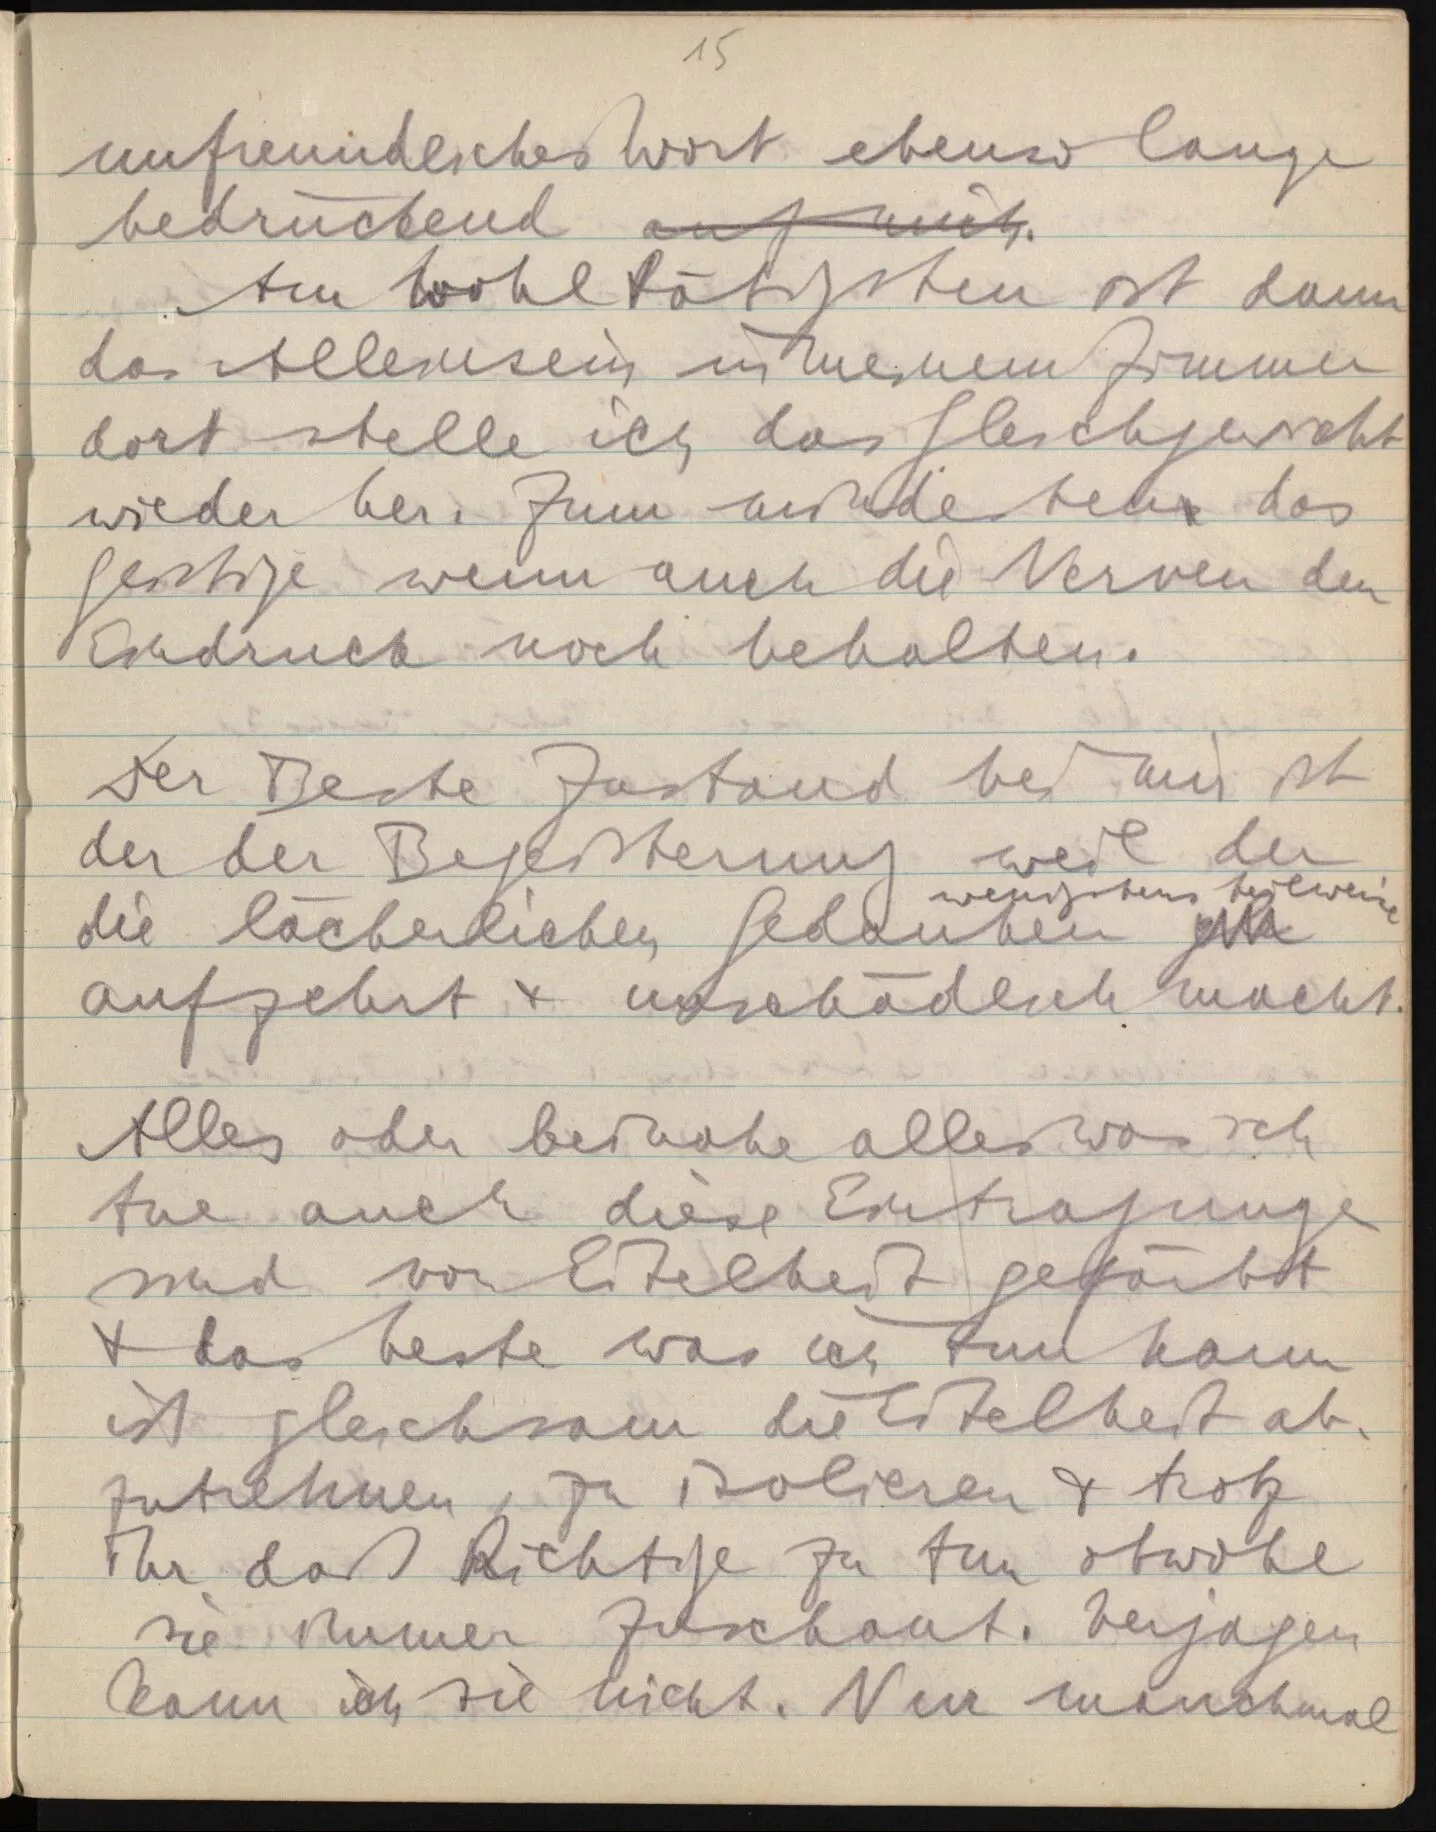 15
unfreundliches Wort ebenso lange
bedrückend auf mich.
Am wohltätigsten ist dann
das Alleinsein in meinem Zimmer
dort stelle ich das Gleichgewicht
wieder her. Zum mindesten das
geistige wenn auch die Nerven den
Eindruck noch behalten.
Der Beste Zustand bei mir ist
der der Begeisterung weil der
wenigstens teilweise
die lächerlichen Gedanken
aufzehrt & unschädlich macht.
Alles oder beinahe alles was ich
tue auch diese Eintragunge
sind von Eitelkeit gefärbt
& das beste was ich tun kann
ist gleichsam die Eitelkeit ab-
zutrennen, zu isolieren & trotz
ihr das Richtige zu tun obwohl
sie immer zuschaut. Verjagen
kann ich sie nicht. Nur manchmal